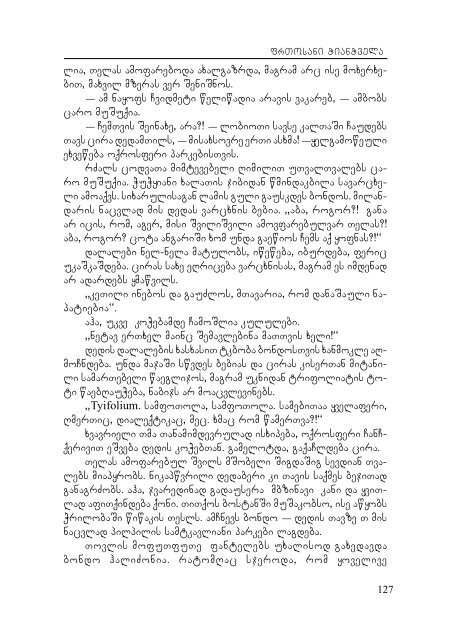 ფრთოსანი ჭიანჭველა
ლია, თელას ამოფარებოდა ახალგაზრდა, მაგრამ არც ისე მოხერხე-
ბით, მახვილ მზერას ვერ შენიშნოს.
— ამ ნაყოფს ჩვიდმეტი წელიწადია არავის ვაკარებ, — ამბობს
ცარო მუშუქია.
— ჩემთვის შეინახე, არა?! — ლობიოთი სავსე კალთაში ჩაუდებს
თავს ცირა დედამთილს, — მისახსოვრე ერთი ასხმა! —ყელგამოწეული
ეხვეწება ოქროსფერი პარკებისთვის.
რძალს ცოდვათა მიმტევებელი ღიმილით უთვალთვალებს ცა-
რო მუშუქია. ჭუჭყიანი ხალათის ჯიბიდან წმინდაკბილა სავარცხე-
ლი ამოაქვს. სიხარულისაგან ლამის გული გაუსკდეს ბონდოს. მილან-
დარის ნაცვლად მის დედას ვარცხნის ბებია. „აბა, როგორ?! განა
არ იცის, რომ, აგერ, მისი შვილიშვილი ამოვფარებულვარ თელას?!
აბა, როგორ? ცოტა ანგარიში ხომ უნდა გაეწიოს ჩემს აქ ყოფნას?!“
დალალები ნელ-ნელა მატულობს, იწეწება, იბურდება, ფერიც
უკაშკაშდება. ცირას სახე ეღრიცება ვარცხნისას, მაგრამ ეს იმდენად
არ ადარდებს ყმაწვილს.
„კეთილი ინებოს და გაუძლოს, მთავარია, რომ დანაშაული ნა-
პატიებია“.
აჰა, უკვე კოჭებამდე ჩამოშლია კულულები.
„ნეტავ ერთხელ მაინც შემავლებინა მათთვის ხელი!“
დედის დალალების ხასხასით ტკბობა ბონდოსთვის ხანმოკლე აღ-
მოჩნდება. უნდა მაჯაში სწვდეს ბებიას და ცირას კისერთან მიტანი-
ლი სამართებელი წაეგლიჯოს, მაგრამ უკნიდან ტრიფოლიატის ტო-
ტი წაებღაუჭება, ნაბიჯს არ მოაცვლევინებს.
„Tyifolium. სამფოთოლა, სამფოთოლა. სამებითაა ყველაფერი,
ღმერთიც, დიალექტიკაც, მეც. ხმაც რომ წამერთვა?!“
ხვავრიელი თმა თანამიმდევრულად ისხიპება, ოქროსფერი ჩანჩ-
ქერივით ეშვება დედის კოჭებთან. გამელოტდა, გაქაჩლდება ცირა.
თელას ამოფარებულ შვილს მშობელი შიგდაშიგ სევდიან თვა-
ლებს მიაპყრობს. ნიკაპწვრილი დედაბერი კი თავის საქმეს ბეჯითად
განაგრძობს. აჰა, ჯვარედინად გადაუსერა მბზინავი კანი და ყვით-
ლად აფითქინდება ქონი. თითქოს ბოსტანში მუშაკობსო, ისე აწყობს
ჭრილობაში წიწაკის თესლს. ამჩნევს ბონდო — დედის თავზე თმის
ნაცვლად პილპილის სამტკაველიანი პარკები ლაგდება.
თოვლის მოფუთფუთე ფანტელებს უხალისოდ გახედავდა
ბონდო ჰალიძონია. რატომღაც სჯეროდა, რომ ყოველივე
127